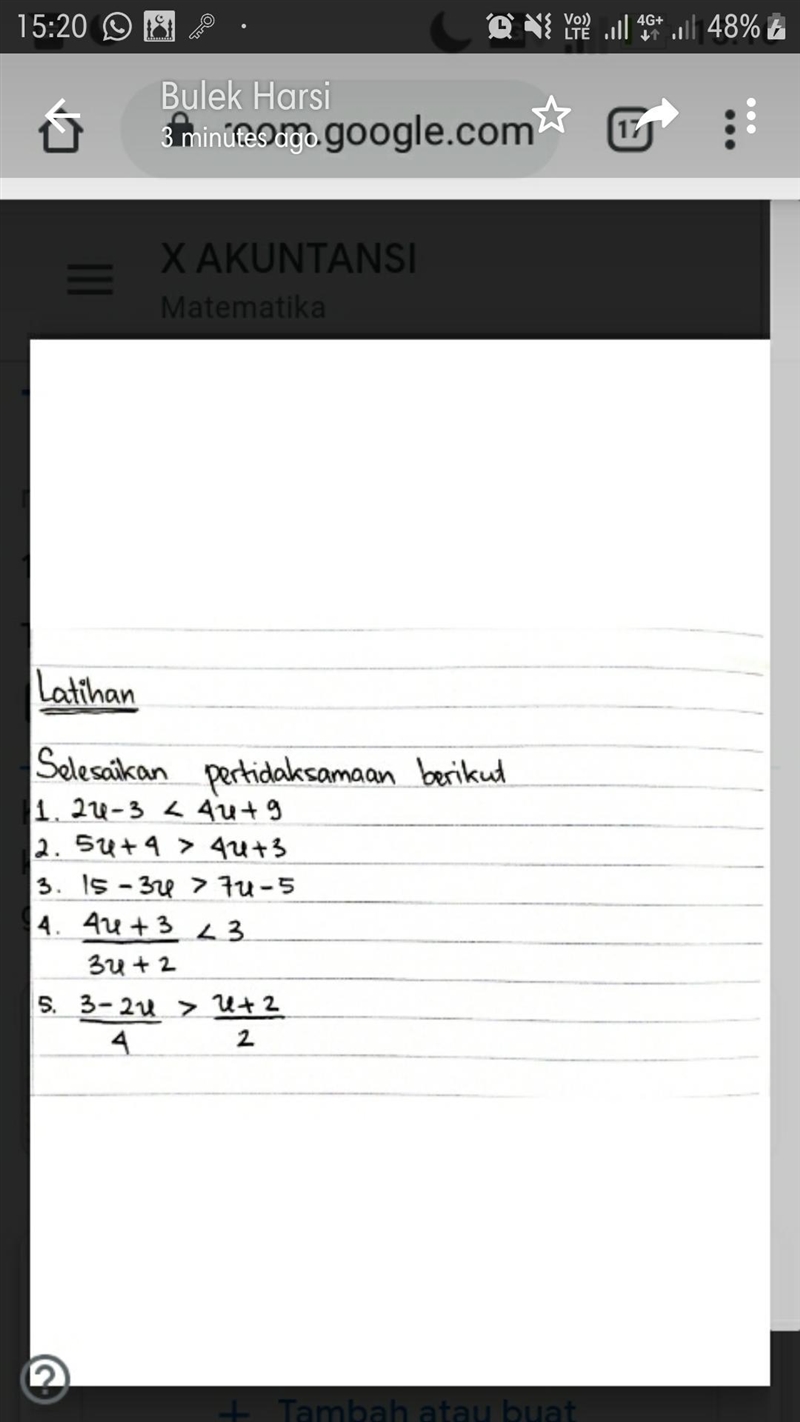 15:20
Vo)) LTE 4G+ 48%
Bulek Harsi
3 minutes ago
oom.google.com
17
X AKUNTANSI
Matematika
Latihan
Selesaikan pertidaksamaan berikut
1. 2x-3 < 4x+9
2. 5x+4 > 4x+3
3. 15-3x > 7x-5
4. 4x+3 < 3
3x+2
5. 3-2x > x+2
4 2
?
+ Tambah atau buat